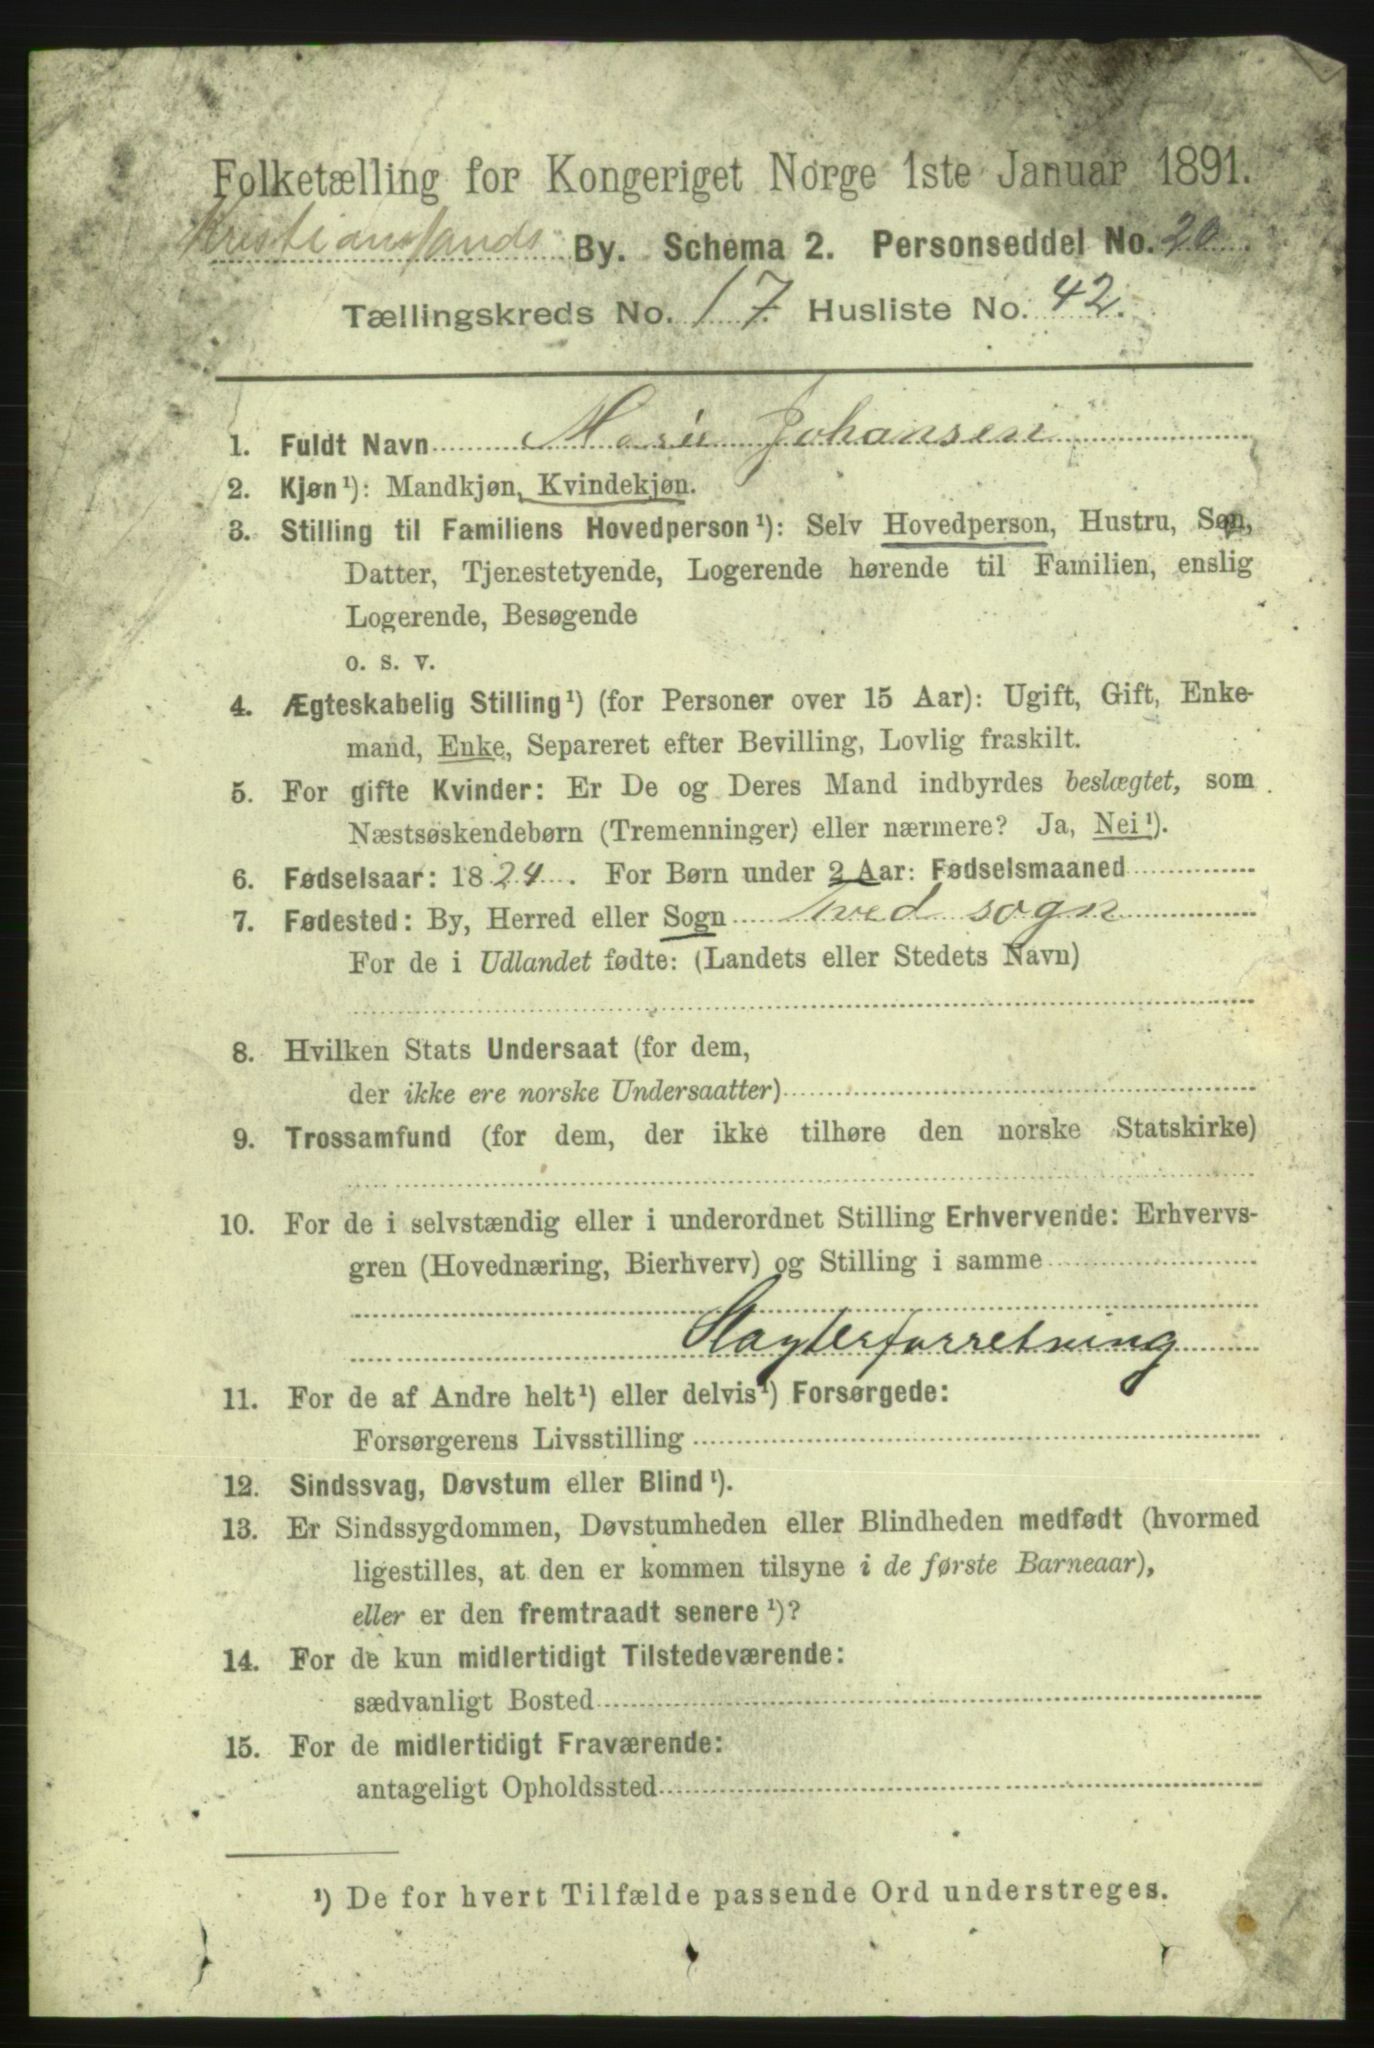 Folketælling for Kongeriget Norge 1ste Januar 1891.
Kristianssands By. Schema 2. Personseddel No. 20.
Tællingskreds No. 17. Husliste No. 42.
1. Fuldt Navn Marie Johansen
2. Kjøn¹): Mandkjøn, Kvindekjøn.
3. Stilling til Familiens Hovedperson¹): Selv Hovedperson, Hustru, Søn,
Datter, Tjenestetyende, Logerende hørende til Familien, enslig
Logerende, Besøgende
o. s. v.
4. Ægteskabelig Stilling¹) (for Personer over 15 Aar): Ugift, Gift, Enke-
mand, Enke, Separeret efter Bevilling, Lovlig fraskilt.
5. For gifte Kvinder: Er De og Deres Mand indbyrdes beslægtet, som
Næstsøskendebørn (Tremenninger) eller nærmere? Ja, Nei¹).
6. Fødselsaar: 1824. For Børn under 2 Aar: Fødselsmaaned
7. Fødested: By, Herred eller Sogn Tved sogn
For de i Udlandet fødte: (Landets eller Stedets Navn)
8. Hvilken Stats Undersaat (for dem,
der ikke ere norske Undersaatter)
9. Trossamfund (for dem, der ikke tilhøre den norske Statskirke)
10. For de i selvstændig eller i underordnet Stilling Erhvervende: Erhvervs-
gren (Hovednæring, Bierhverv) og Stilling i samme
Slagterforretning
11. For de af Andre helt¹) eller delvis¹) Forsørgede:
Forsørgerens Livsstilling
12. Sindssvag, Døvstum eller Blind¹).
13. Er Sindssygdommen, Døvstumheden eller Blindheden medfødt (hvormed
ligestilles, at den er kommen tilsyne i de første Barneaar),
eller er den fremtraadt senere¹)?
14. For de kun midlertidigt Tilstedeværende:
sædvanligt Bosted
15. For de midlertidigt Fraværende:
antageligt Opholdssted
¹) De for hvert Tilfælde passende Ord understreges.